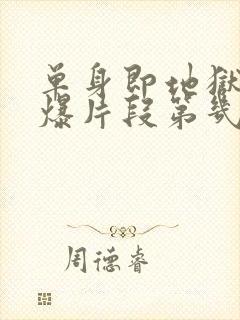 单身即地狱
爆片段第几
周德睿